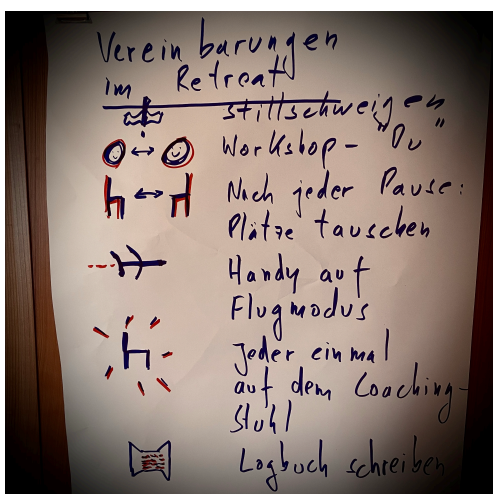 Vereinbarungen
im Retreat
stillschweigen
Workshop - "Du"
Nach jeder Pause:
Plätze tauschen
Handy auf
Flugmodus
Jeder einmal
auf dem Coaching-
Stuhl
Logbuch schreiben